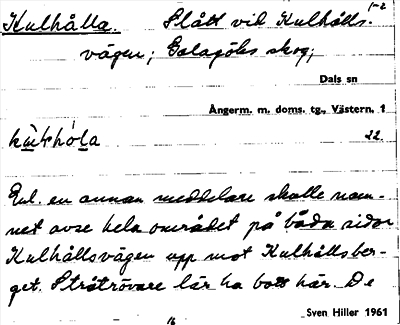 1-2
Kulhålla. Slått vid Kulhålls-
vägen; Galasjöles skog;
Dals sn
Ångerm. m. doms. tg., Västern. 1
22.
Enl. en annan meddelare skulle nam-
net avse hela området på båda sidor
Kulhållsvägen upp mot Kulhållsber-
get. Stråtrövare lär ha bott här. De
Sven Hiller 1961
16